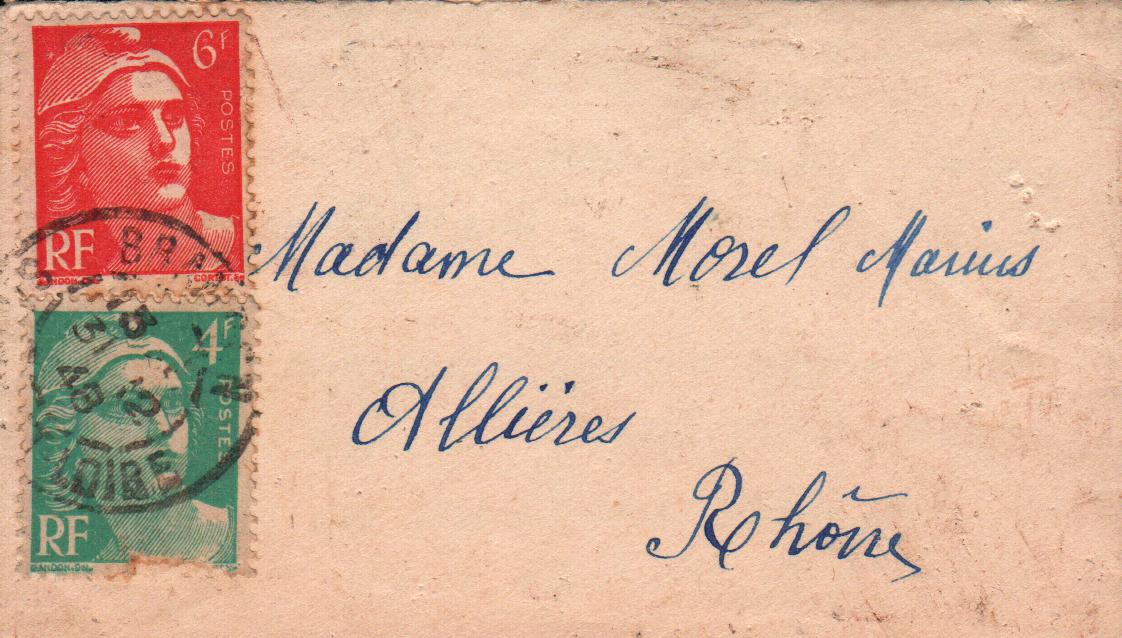 6F
POSTES
RF
GANDON-DEL
4F
POSTES
RF
GANDON-DEL
18
31 12
48
LOIRE
Madame Morel Marius
Allières
Rhône